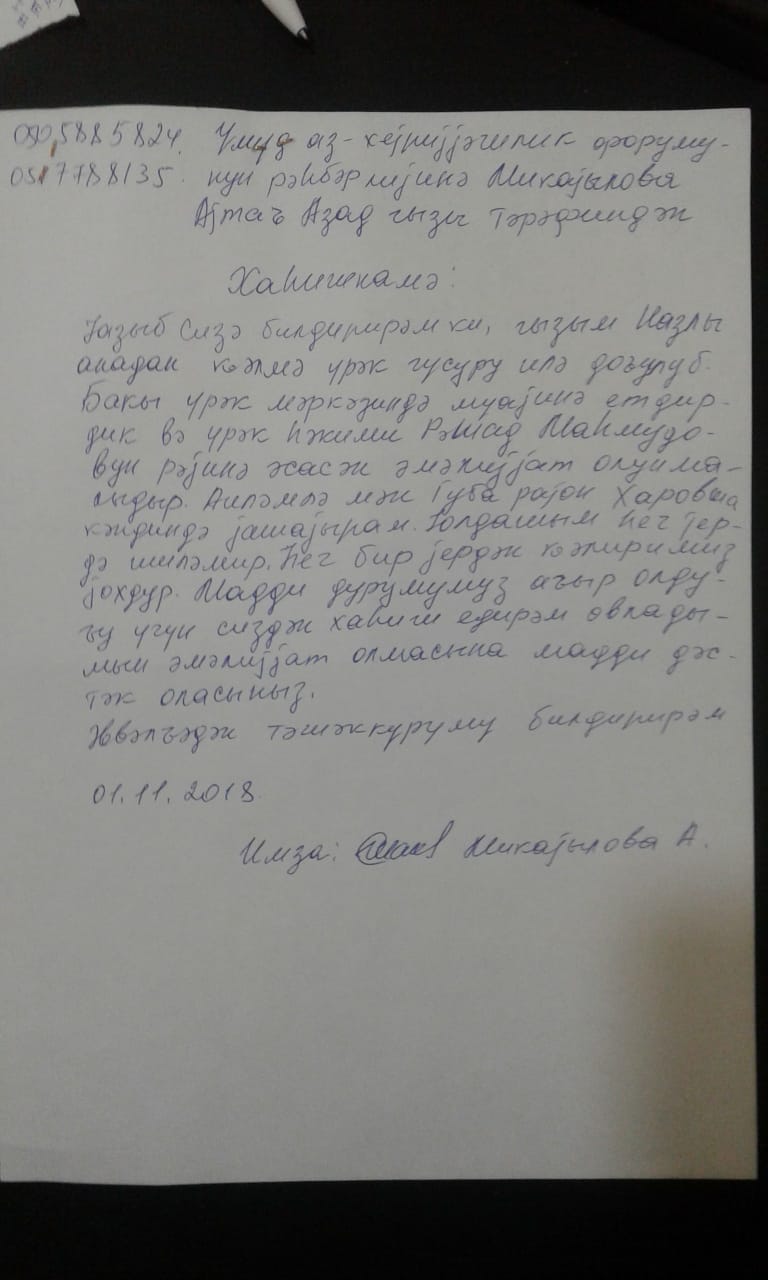 0505885824. Умуд аз-хејријјәчилик форуму-
0517788135. нун рәһбәрлијинә Микајылова
Ајтаъ Азад гызы тәрәфиндән
Хаһишнамә:
Јазыб сизә билдирирәм ки, гызым Назлы
анадан кәлмә үрәк гусуру илә доъулуб.
Бакы үрәк мәркәзиндә муајинә етдир-
дик вә үрәк һәкими Рәшад Маһмудо-
вун рәјинә әсасән әмәлијјат олунма-
лыдыр. Аиләмлә мән Губа рајон Харовша
кәндиндә јашајырам. Јолдашым һеч јер-
дә ишләмир. Һеч бир јердән кәлиримиз
јохдур. Мадди дурумумуз аъыр олду-
ъу үчүн сиздән хаһиш едирәм өвлады-
мын әмәлијјат олмасына мадди дәс-
тәк оласыныз.
Әввәлъәдән тәшәккүрүмү билдирирәм
01.11.2018.
Имза: Микајылова А.